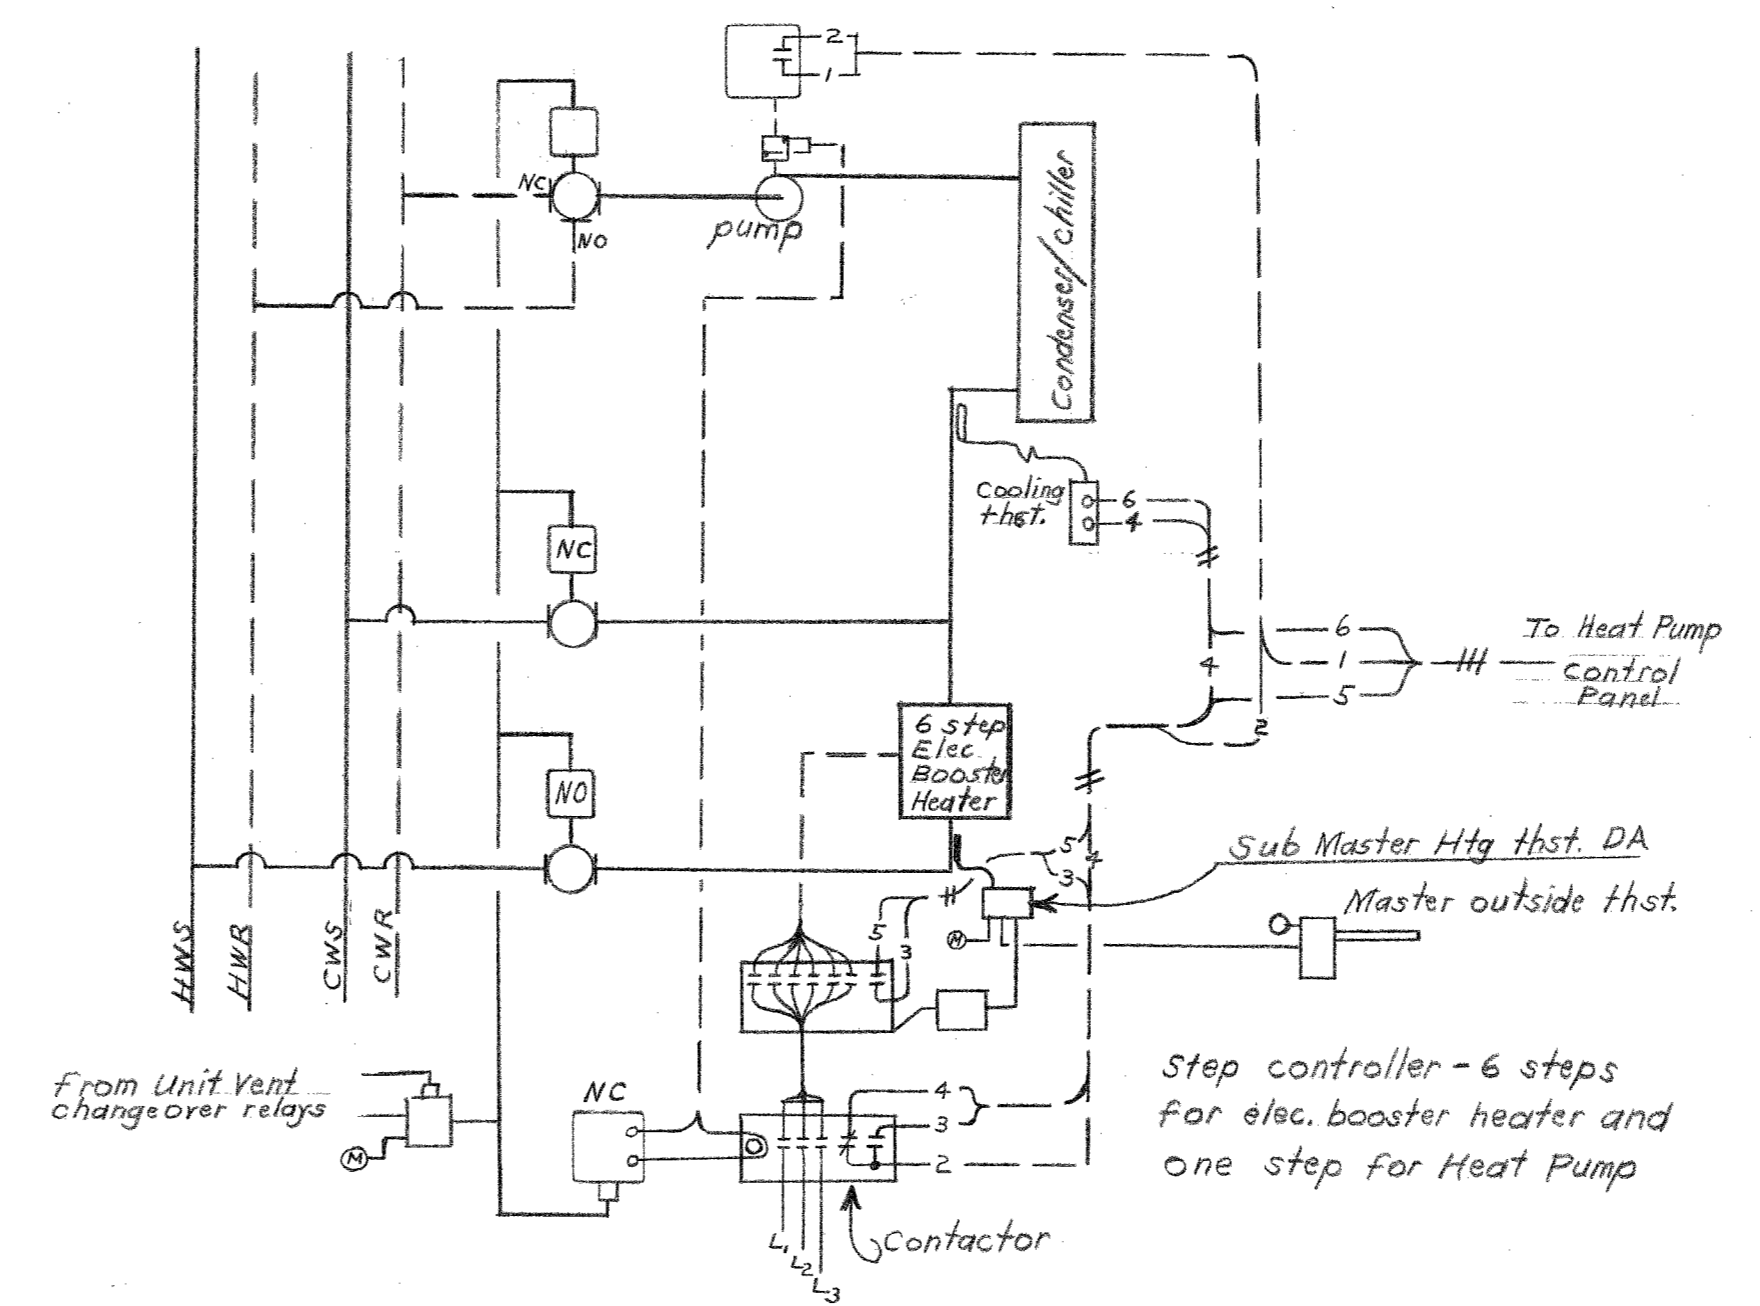 2
1
NC
NO
pump
Condenser/chiller
Cooling
thst.
6
4
NC
6
1
5
4
2
To Heat Pump
Control
Panel
6 step
Elec
Booster
Heater
NO
5
4
3
Sub Master Htg thst. DA
Master outside thst.
HWS
HWR
CWS
CWR
5
3
M
From Unit Vent
changeover relays
M
NC
4
3
2
Step controller - 6 steps
for elec. booster heater and
one step for Heat Pump
L1
L2
L3
Contactor